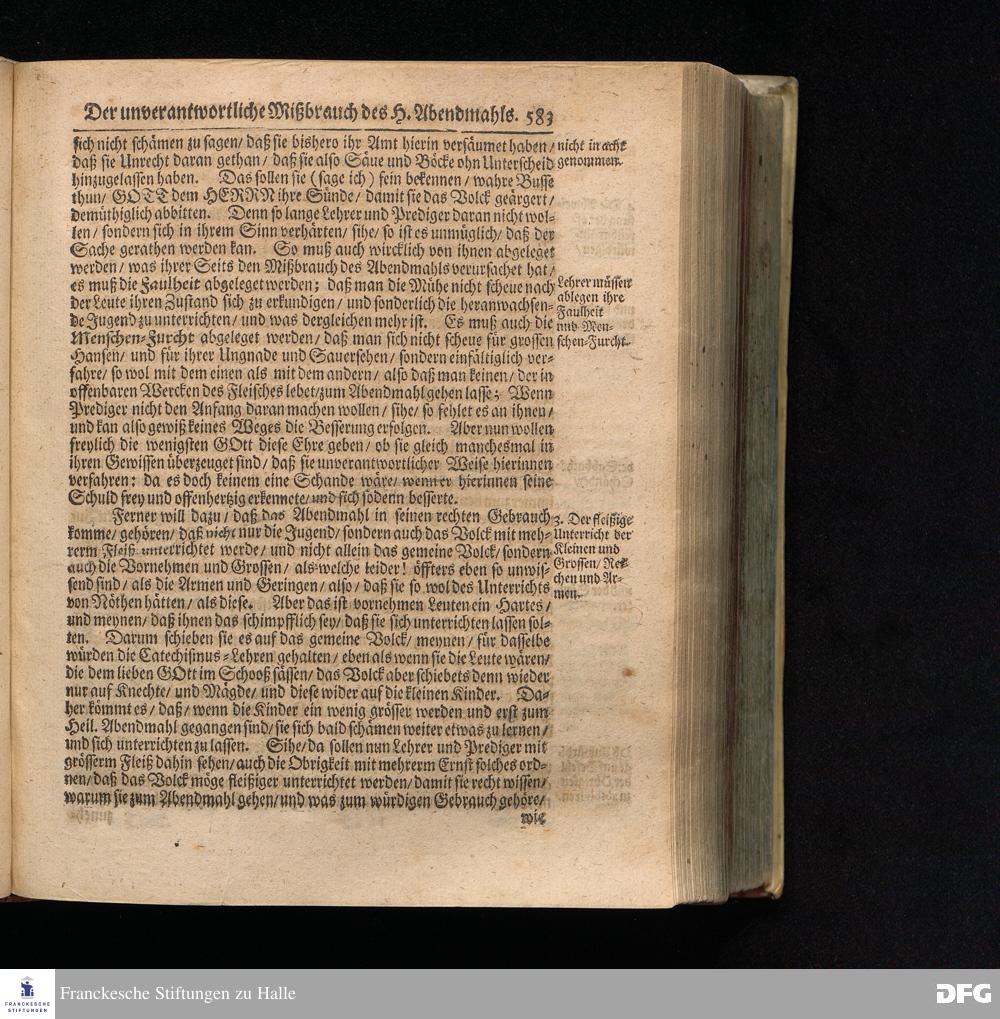 Der unverantwortliche Mißbrauch des H. Abendmahls. 583
sich nicht schämen zu sagen/ daß sie bishero ihr Amt hierin versäumet haben/
daß sie Unrecht daran gethan/ daß sie also Säue und Böcke ohn Unterscheid
hinzugelassen haben. Das sollen sie (sage ich) fein bekennen/ wahre Busse
thun/ GOTT dem HERRN ihre Sünde/ damit sie das Volck geärgert/
demüthiglich abbitten. Denn so lange Lehrer und Prediger daran nicht wol-
len/ sondern sich in ihrem Sinn verhärten/ sihe/ so ist es unmüglich/ daß der
Sache gerathen werden kan. So muß auch wircklich von ihnen abgeleget
werden/ was ihrer Seits den Mißbrauch des Abendmahls verursachet hat/
es muß die Faulheit abgeleget werden; daß man die Mühe nicht scheue nach
der Leute ihren Zustand sich zu erkundigen/ und sonderlich die heranwachsen-
de Jugend zu unterrichten/ und was dergleichen mehr ist. Es muß auch die
Menschen-Furcht abgeleget werden/ daß man sich nicht scheue für grossen
Hansen/ und für ihrer Ungnade und Sauersehen/ sondern einfältiglich ver-
fahre/ so wol mit dem einen als mit dem andern/ also daß man keinen/ der in
offenbaren Wercken des Fleisches lebet/ zum Abendmahl gehen lasse; Wenn
Prediger nicht den Anfang daran machen wollen/ sihe/ so fehlet es an ihnen/
und kan also gewiß keines Weges die Besserung erfolgen. Aber nun wollen
freylich die wenigsten GOtt diese Ehre geben/ ob sie gleich manchesmal in
ihren Gewissen überzeuget sind/ daß sie unverantwortlicher Weise hierinnen
verfahren: da es doch keinem eine Schande wäre/ wenn er hierinnen seine
Schuld frey und offenhertzig erkennete/ und sich sodenn besserte.
Ferner will dazu/ daß das Abendmahl in seinen rechten Gebrauch
komme/ gehören/ daß nicht nur die Jugend/ sondern auch das Volck mit meh-
rerm Fleiß unterrichtet werde/ und nicht allein das gemeine Volck/ sondern
auch die Vornehmen und Grossen/ als welche leider! öffters eben so unwis-
send sind/ als die Armen und Geringen/ also/ daß sie so wol des Unterrichts
von Nöthen hätten/ als diese. Aber das ist vornehmen Leuten ein Hartes/
und meynen/ daß ihnen das schimpfflich sey/ daß sie sich unterrichten lassen sol-
ten. Darum schieben sie es auf das gemeine Volck/ meynen/ für dasselbe
würden die Catechismus-Lehren gehalten/ eben als wenn sie die Leute wären/
die dem lieben GOtt im Schooß sässen/ das Volck aber schiebets denn wieder
nur auf Knechte/ und Mägde/ und diese wider auf die kleinen Kinder. Da-
her kömmt es/ daß/ wenn die Kinder ein wenig grösser werden und erst zum
Heil. Abendmahl gegangen sind/ sie sich bald schämen weiter etwas zu lernen/
und sich unterrichten zu lassen. Sihe/ da sollen nun Lehrer und Prediger mit
grösserm Fleiß dahin sehen/ auch die Obrigkeit mit mehrerm Ernst solches ord-
nen/ daß das Volck möge fleißiger unterrichtet werden/ damit sie recht wissen/
warum sie zum Abendmahl gehen/ und was zum würdigen Gebrauch gehöre/
wie
nicht in acht
genommen.
Lehrer müssen
ablegen ihre
Faulheit
und Men-
schen-Furcht.
3. Der fleißige
Unterricht der
Kleinen und
Grossen/ Rei-
chen und Ar-
men.
FRANCKESCHE
STIFTUNGEN
Franckesche Stiftungen zu Halle
DFG